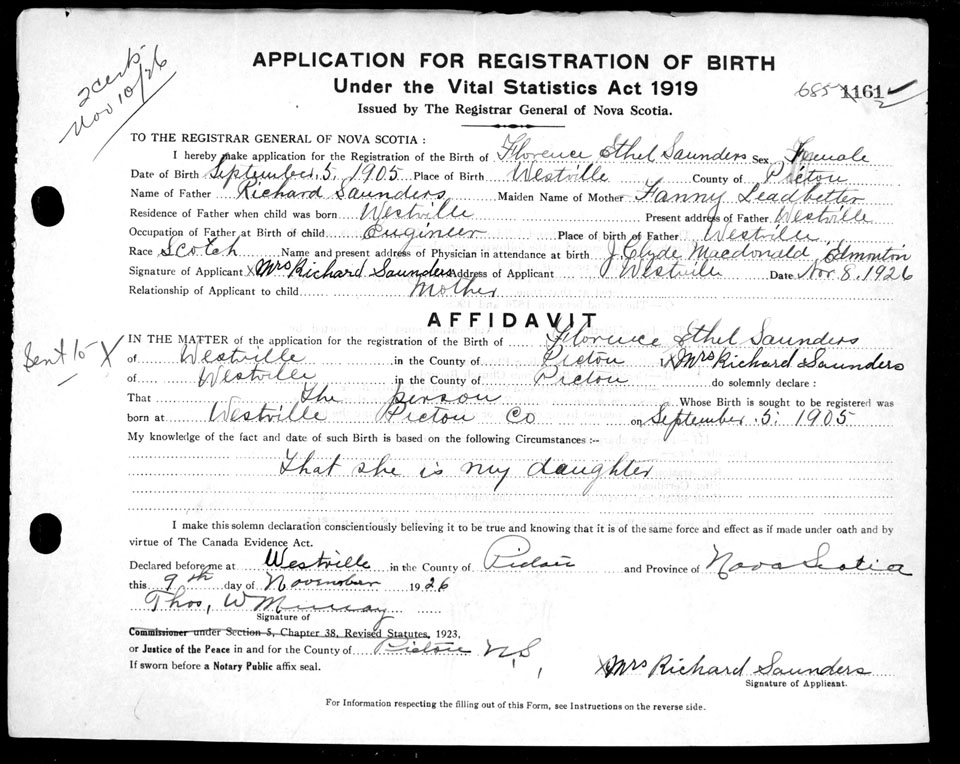 2 certs
Nov 10/26
APPLICATION FOR REGISTRATION OF BIRTH
Under the Vital Statistics Act 1919
Issued by The Registrar General of Nova Scotia.
1161
TO THE REGISTRAR GENERAL OF NOVA SCOTIA :
I hereby make application for the Registration of the Birth of Florence Ethel Saunders Sex Female
Date of Birth September. 5, 1905 Place of Birth Westville County of Pictou
Name of Father Richard Saunders Maiden Name of Mother Fanny Leadbetter
Residence of Father when child was born Westville Present address of Father Westville
Occupation of Father at Birth of child Engineer Place of birth of Father Westville
Race Scotch Name and present address of Physician in attendance at birth J. Clyde Macdonald, Edmonton
Signature of Applicant X Mrs Richard Saunders Address of Applicant Westville Date Nov. 8, 1926
Relationship of Applicant to child Mother
AFFIDAVIT
Sent to X
IN THE MATTER of the application for the registration of the Birth of Florence Ethel Saunders
of Westville in the County of Pictou X Mrs Richard Saunders
of Westville in the County of Pictou do solemnly declare :
That the person Whose Birth is sought to be registered was
born at Westville Pictou Co on September. 5: 1905
My knowledge of the fact and date of such Birth is based on the following Circumstances :--
That she is my daughter
I make this solemn declaration conscientiously believing it to be true and knowing that it is of the same force and effect as if made under oath and by
virtue of The Canada Evidence Act.
Declared before me at Westville in the County of Pictou and Province of Nova Scotia
this 9th day of November 1926
Thos, W Murray
Signature of
Commissioner under Section 5, Chapter 38, Revised Statutes, 1923,
or Justice of the Peace in and for the County of Pictou N.S,
If sworn before a Notary Public affix seal.
X Mrs Richard Saunders
Signature of Applicant.
For Information respecting the filling out of this Form, see Instructions on the reverse side.